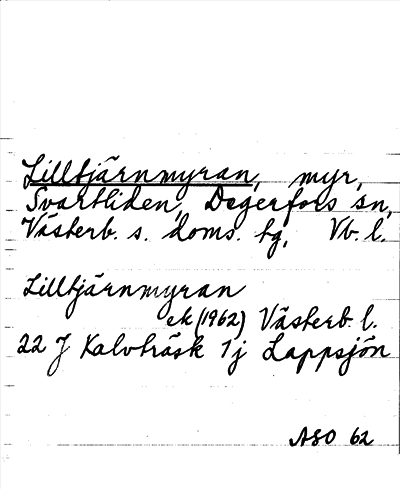 Lilltjärnmyran, myr,
Svartliden, Degerfors sn,
Västerb. s. doms. tg, Vb. l.
Lilltjärnmyran
ek (1962) Västerb. l.
22 J Kalvträsk 1j Lappsjön
ASO 62